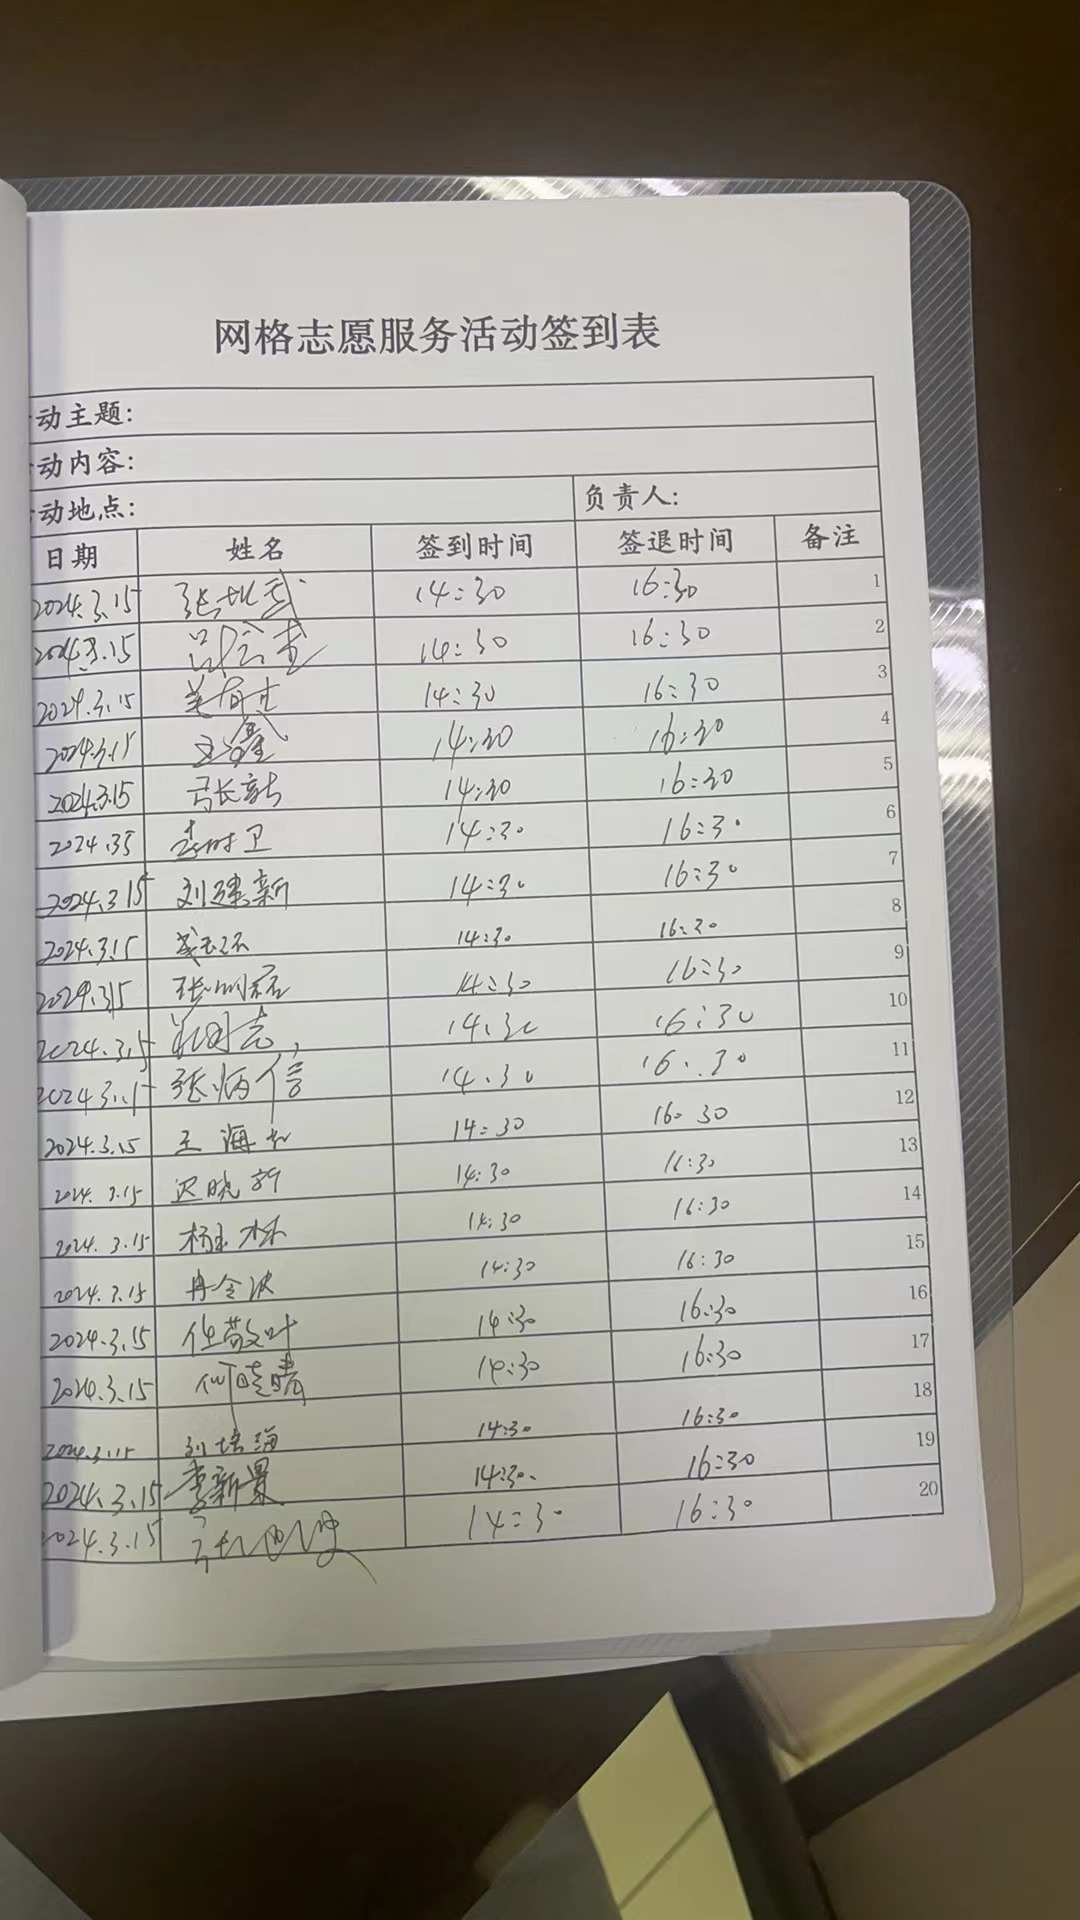 网格志愿服务活动签到表
动主题:
动内容:
动地点: 负责人:
日期 姓名 签到时间 签退时间 备注
2024.3.15 14:30 16:30 1
2024.3.15 14:30 16:30 2
2024.3.15 14:30 16:30 3
2024.3.15 14:30 16:30 4
2024.3.15 弓长新 14:30 16:30 5
2024.35 李时卫 14:30 16:30 6
2024.3 15 刘建新 14:30 16:30 7
2024.3.15 14:30 16:30 8
2024.315 14:30 16:30 9
2024.3.15 14:30 16:30 10
2024 3.15 张炳信 14:30 16:30 11
2024.3.15 王海 14:30 16:30 12
2024.3.15 迟晓新 14:30 16:30 13
2024.3.15 杨玉林 14:30 16:30 14
2024.3.15 冉令波 14:30 16:30 15
2024.3.15 任敬叶 14:30 16:30 16
2024.3.15 何晓晴 14:30 16:30 17
2024.3.15 刘培海 14:30 16:30 18
2024.3.15 李新景 14:30. 16:30 19
2024.3.15 14:30 16:30 20